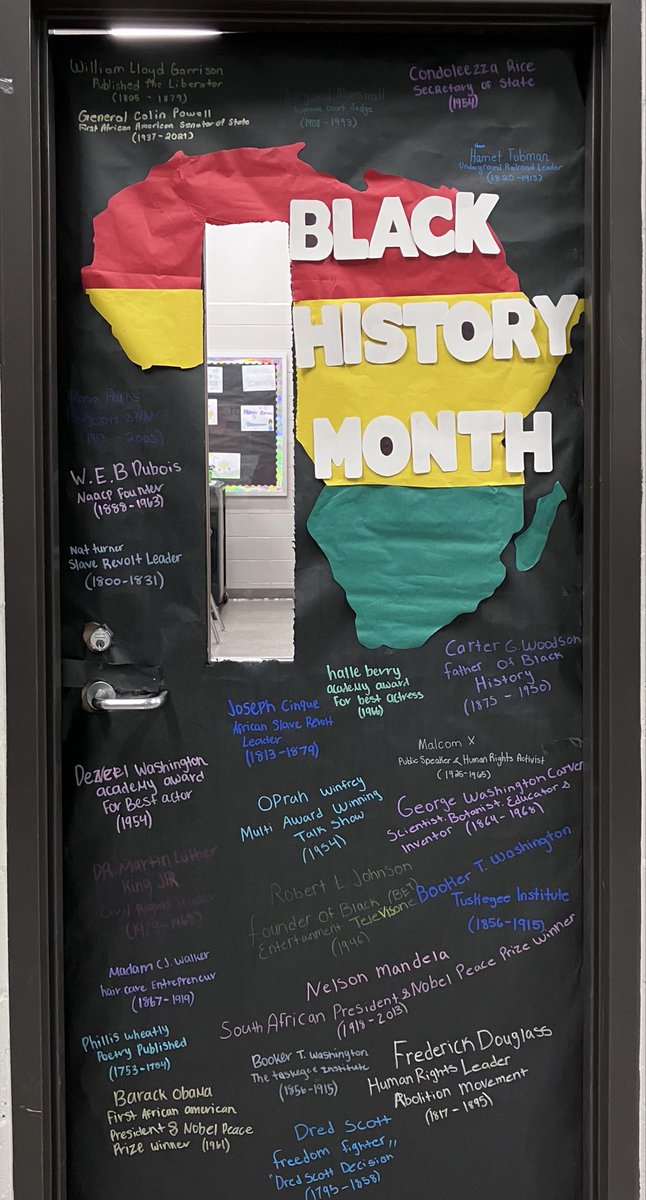 William Lloyd Garrison
Published the Liberator
(1805 - 1879)
General Colin Powell
First African American Senator of State
(1937-2021)
Thurgood Marshall
Supreme Court Judge
(1908-1993)
Condoleezza Rice
Secretary of State
(1954)
Harriet Tubman
Underground Railroad Leader
(1820-1913)
BLACK
HISTORY
MONTH
Rosa Parks
Boycott & NAACP
(1913 - 2005)
W.E.B Dubois
Naacp Founder
(1888-1963)
Nat turner
Slave Revolt Leader
(1800-1831)
Carter G. Woodson
father Of Black
History
(1875 - 1950)
halle berry
academy award
For best actress
(1966)
Joseph Cinque
African Slave Revolt
Leader
(1813-1879)
Malcom X
Public Speaker & Human Rights Activist
(1925-1965)
Denzel Washington
academy award
For Best actor
(1954)
OPrah Winfrey
Multi Award Winning
Talk Show
(1954)
George Washington Carver
Scientist, Botanist, Educator &
Inventor (1864-1968)
DR. Martin Luther
King JR
Civil Rights leader
(1929-1968)
Robert L Johnson
Founder Of Black (BET
Entertainment Televisone
(1946)
Booker T. Washington
Tuskegee Institute
(1856-1915)
Madam C.J. Walker
hair care Entrepreneur
(1867-1919)
Nelson Mandela
South African President & Nobel Peace Prize Winner
(1918-2013)
Phillis Wheatly
Poetry Published
(1753-1784)
Booker T. Washington
The Tuskegee Institute
(1856-1915)
Frederick Douglass
Human Rights Leader
Abolition Movement
(1817 - 1895)
Barack Obama
First African american
President & Nobel Peace
Prize winner (1961)
Dred Scott
freedom fighter,,
"Dred Scott Decision
(1795-1858)